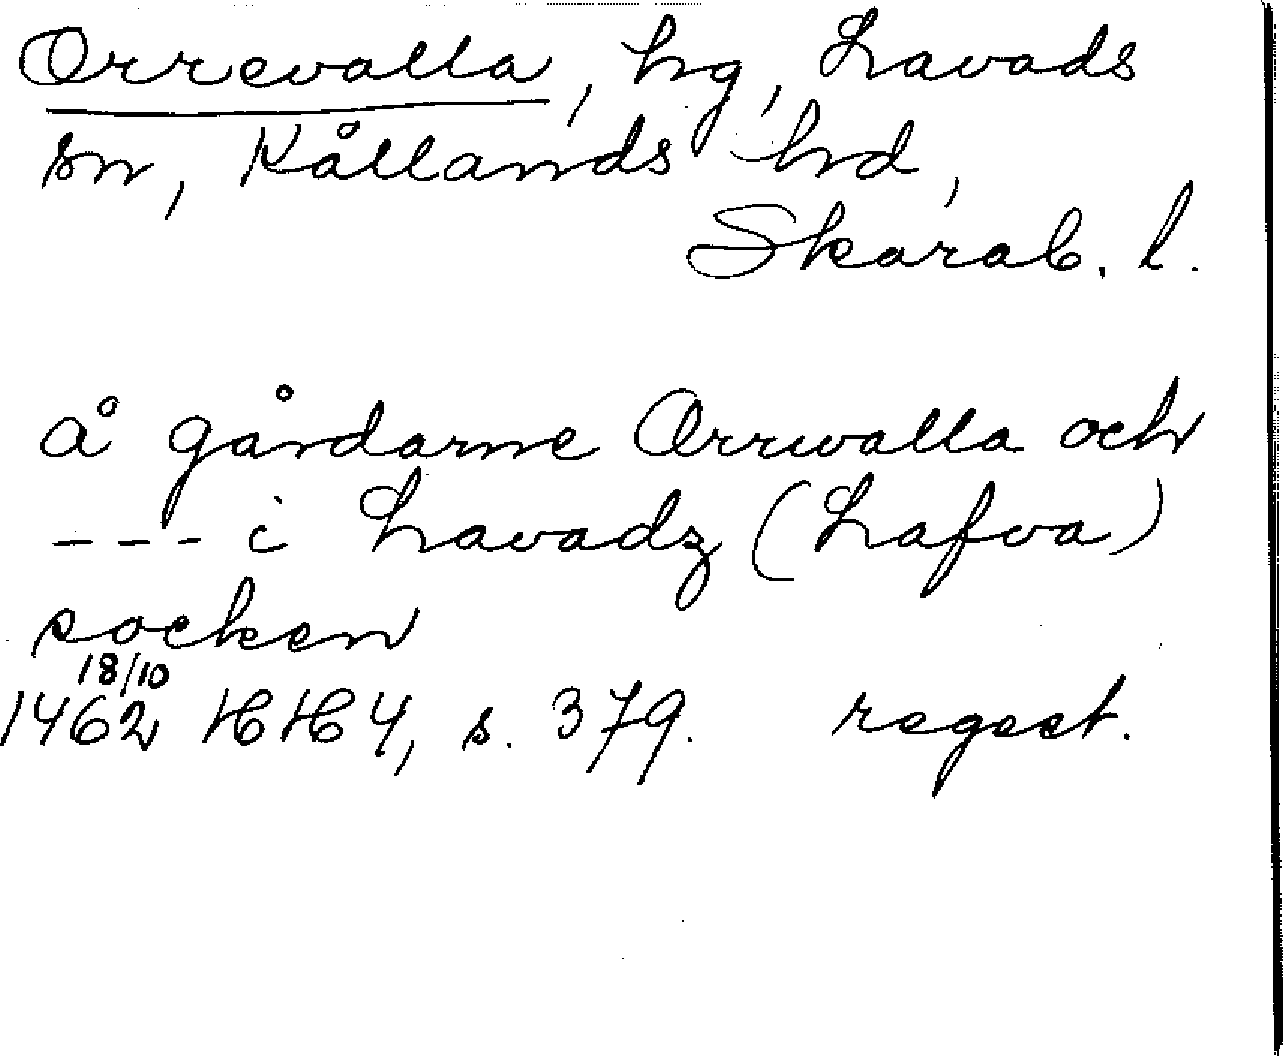 Orrevalla, hg, Lavads
sn, Kållands hd,
Skarab. l.
å gårdarne Orrwalla och
--- i Lavadz (Lafva)
socken
18/10
1462 HH 4, s. 379. regest.